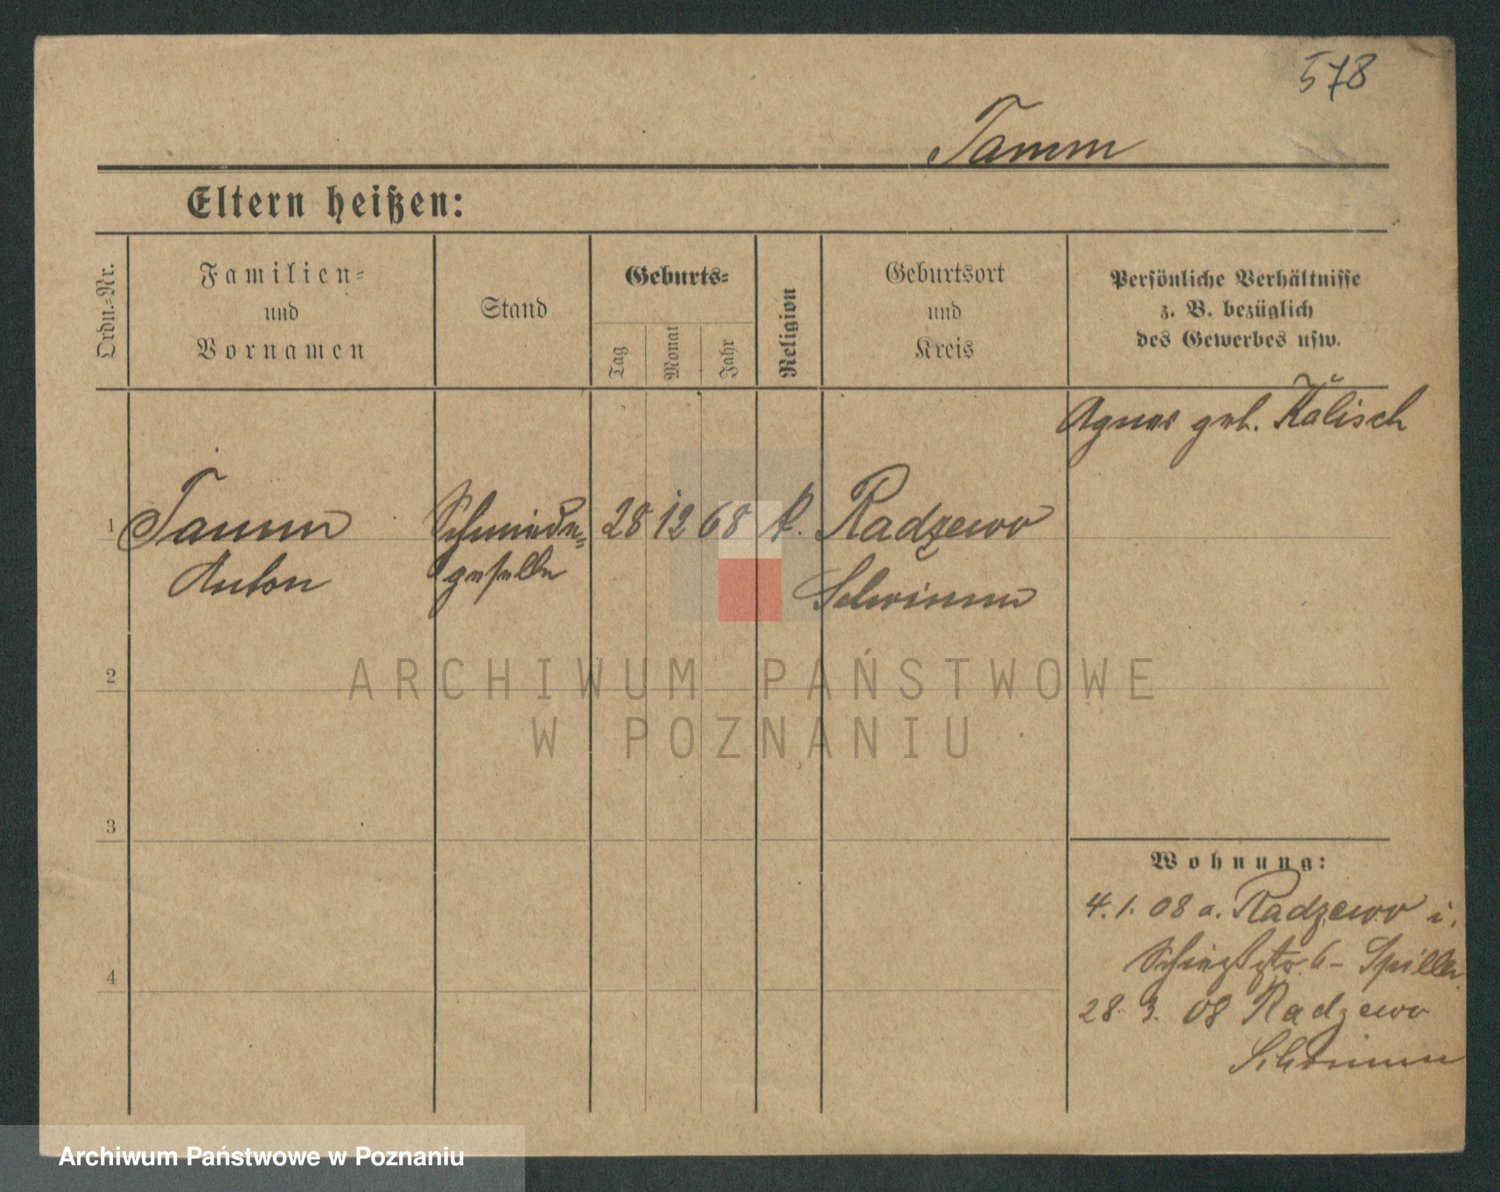 578
Tamm
Eltern heißen:
Ordn.-Nr.
Familien-
und
Vornamen
Stand
Geburts-
Tag
Monat
Jahr
Religion
Geburtsort
und
Kreis
Persönliche Verhältnisse
z. B. bezüglich
des Gewerbes usw.
Agnes geb. Kalisch
1 Tamm Schmiede- 28 12 68 k. Radzewo
Anton geselle Schrimm
2
3
4
Wohnung:
4.1.08 a. Radzewo i.
6 - Spiller
28.3.08 Radzewo
Schrimm
ARCHIWUM PAŃSTWOWE
W POZNANIU
Archiwum Państwowe w Poznaniu